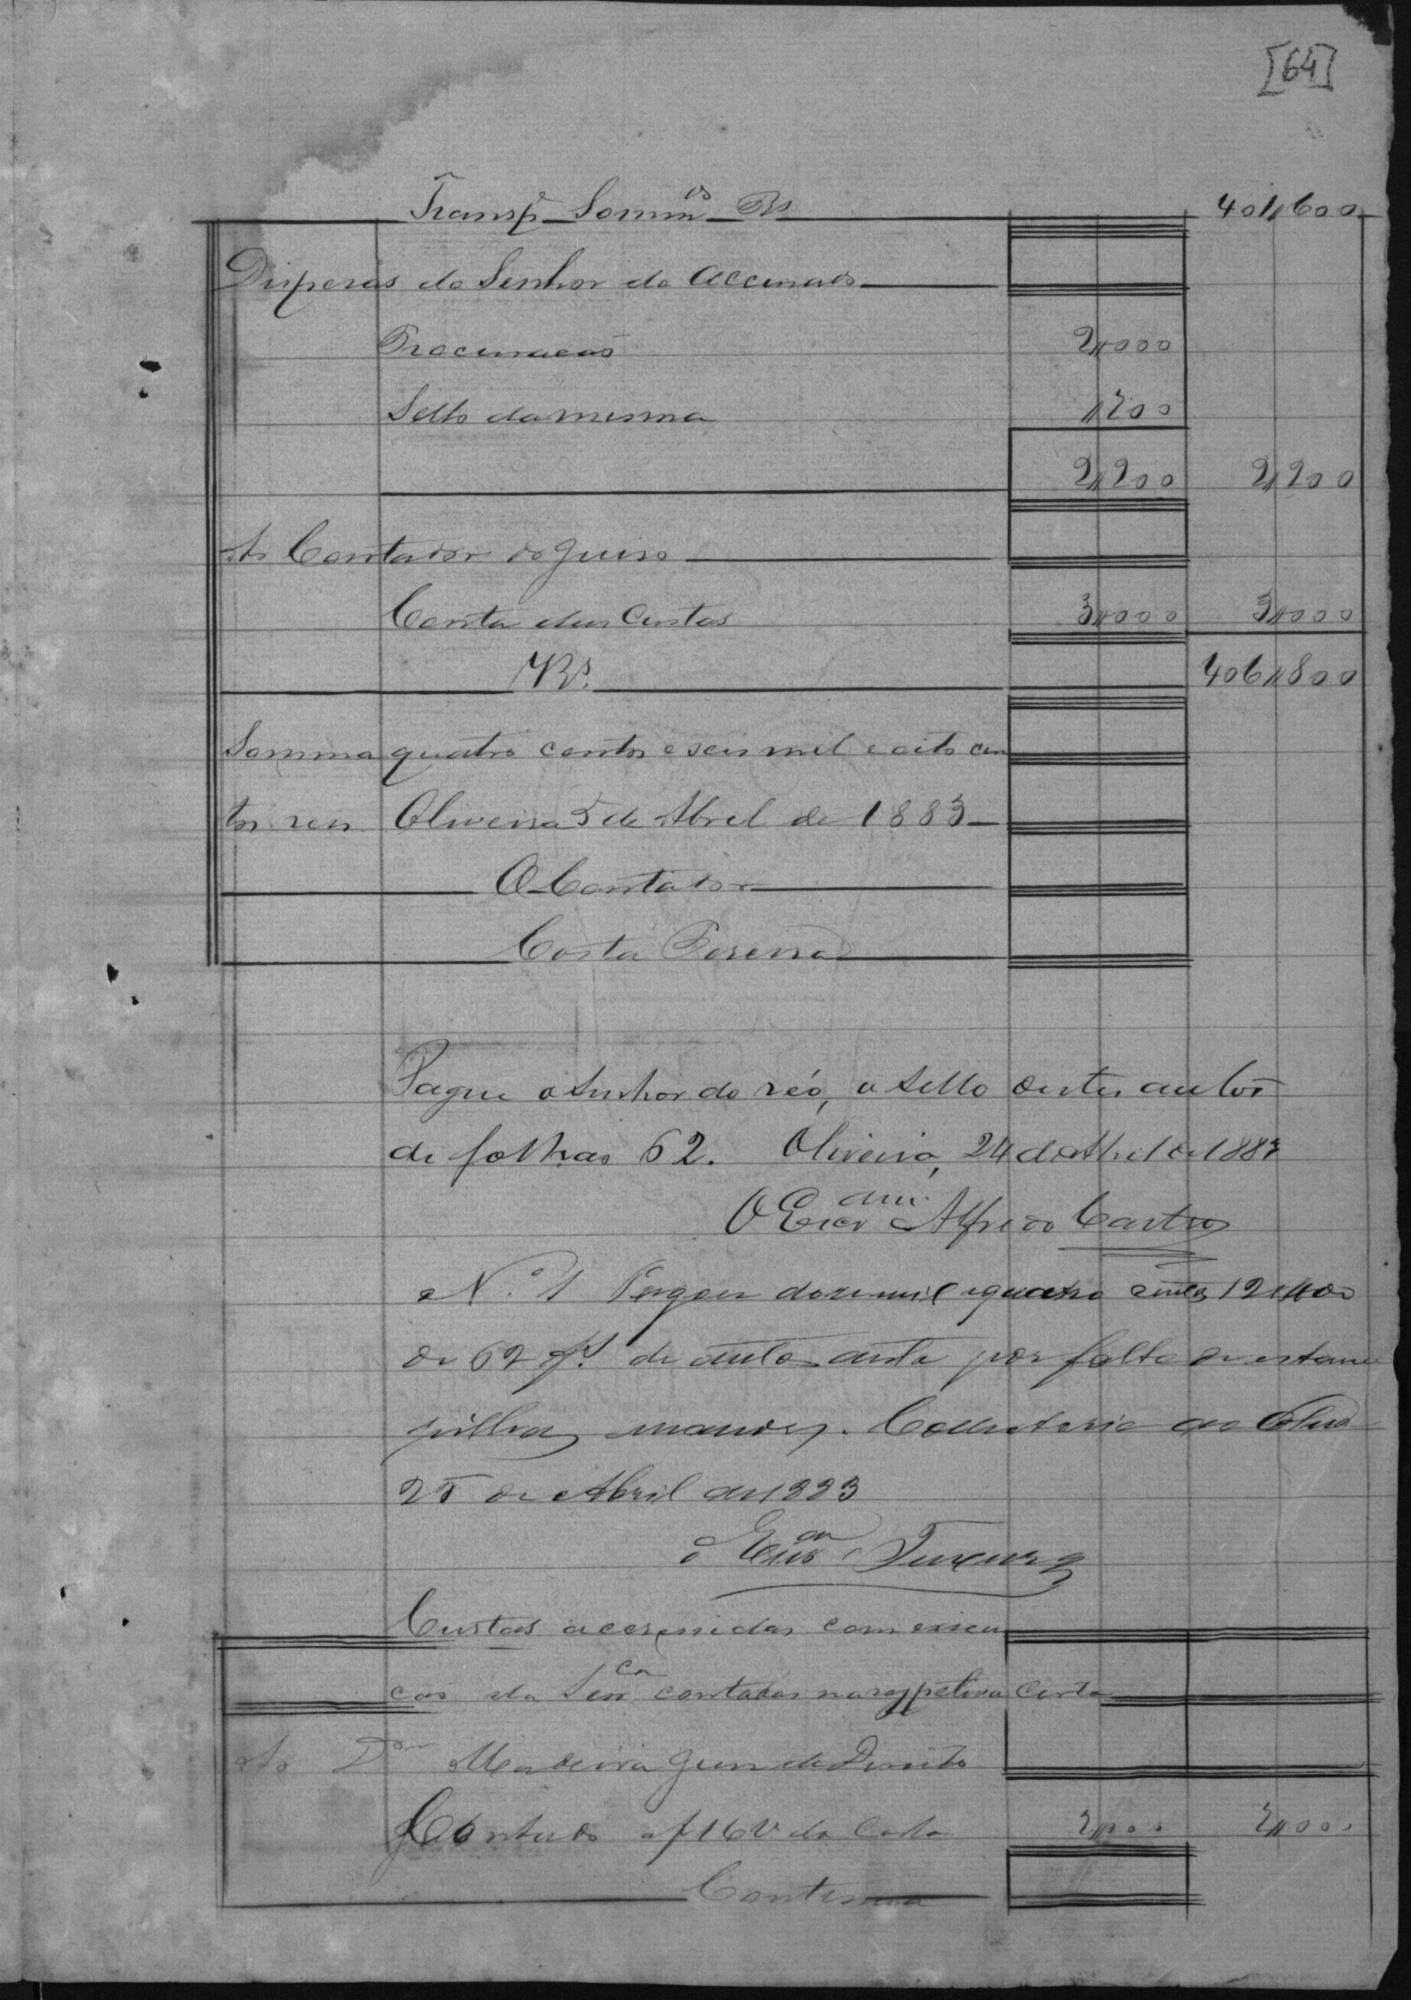 [64]
Transpe Sommos Rs 401,,600
Dispesas do Senhor do accusado
Procuração 2,,000
Sello da mesma ,,200
2,,200 2,,200
Ao Contador do Juiso
Conta das Custas 3,,000 3,,000
Rs. 406,,800
Somma quatro centos e seis mil e oito cen
tos reis Oliveira 5 de Abril de 1883
O Contador
Costa Pereira
Pague o Senhor do réo, o sello destes autos
de folhas 62. Oliveira, 24 de Abril de 1883
O Escram Alfredo Castro
N.º 1 Pagou doze mil e quatro centos 12,,400
de 62 fs. de autos por falta de estam
pilhas Collectoria
25 de Abril de 1883
o Escam
Custas acrescidas com execu
cão da Senca contadas na respectiva Carta
Ao Dor Madeira Juis de Direito
Contado a f 16 v da Carta 2,,000 2,,000
Continua